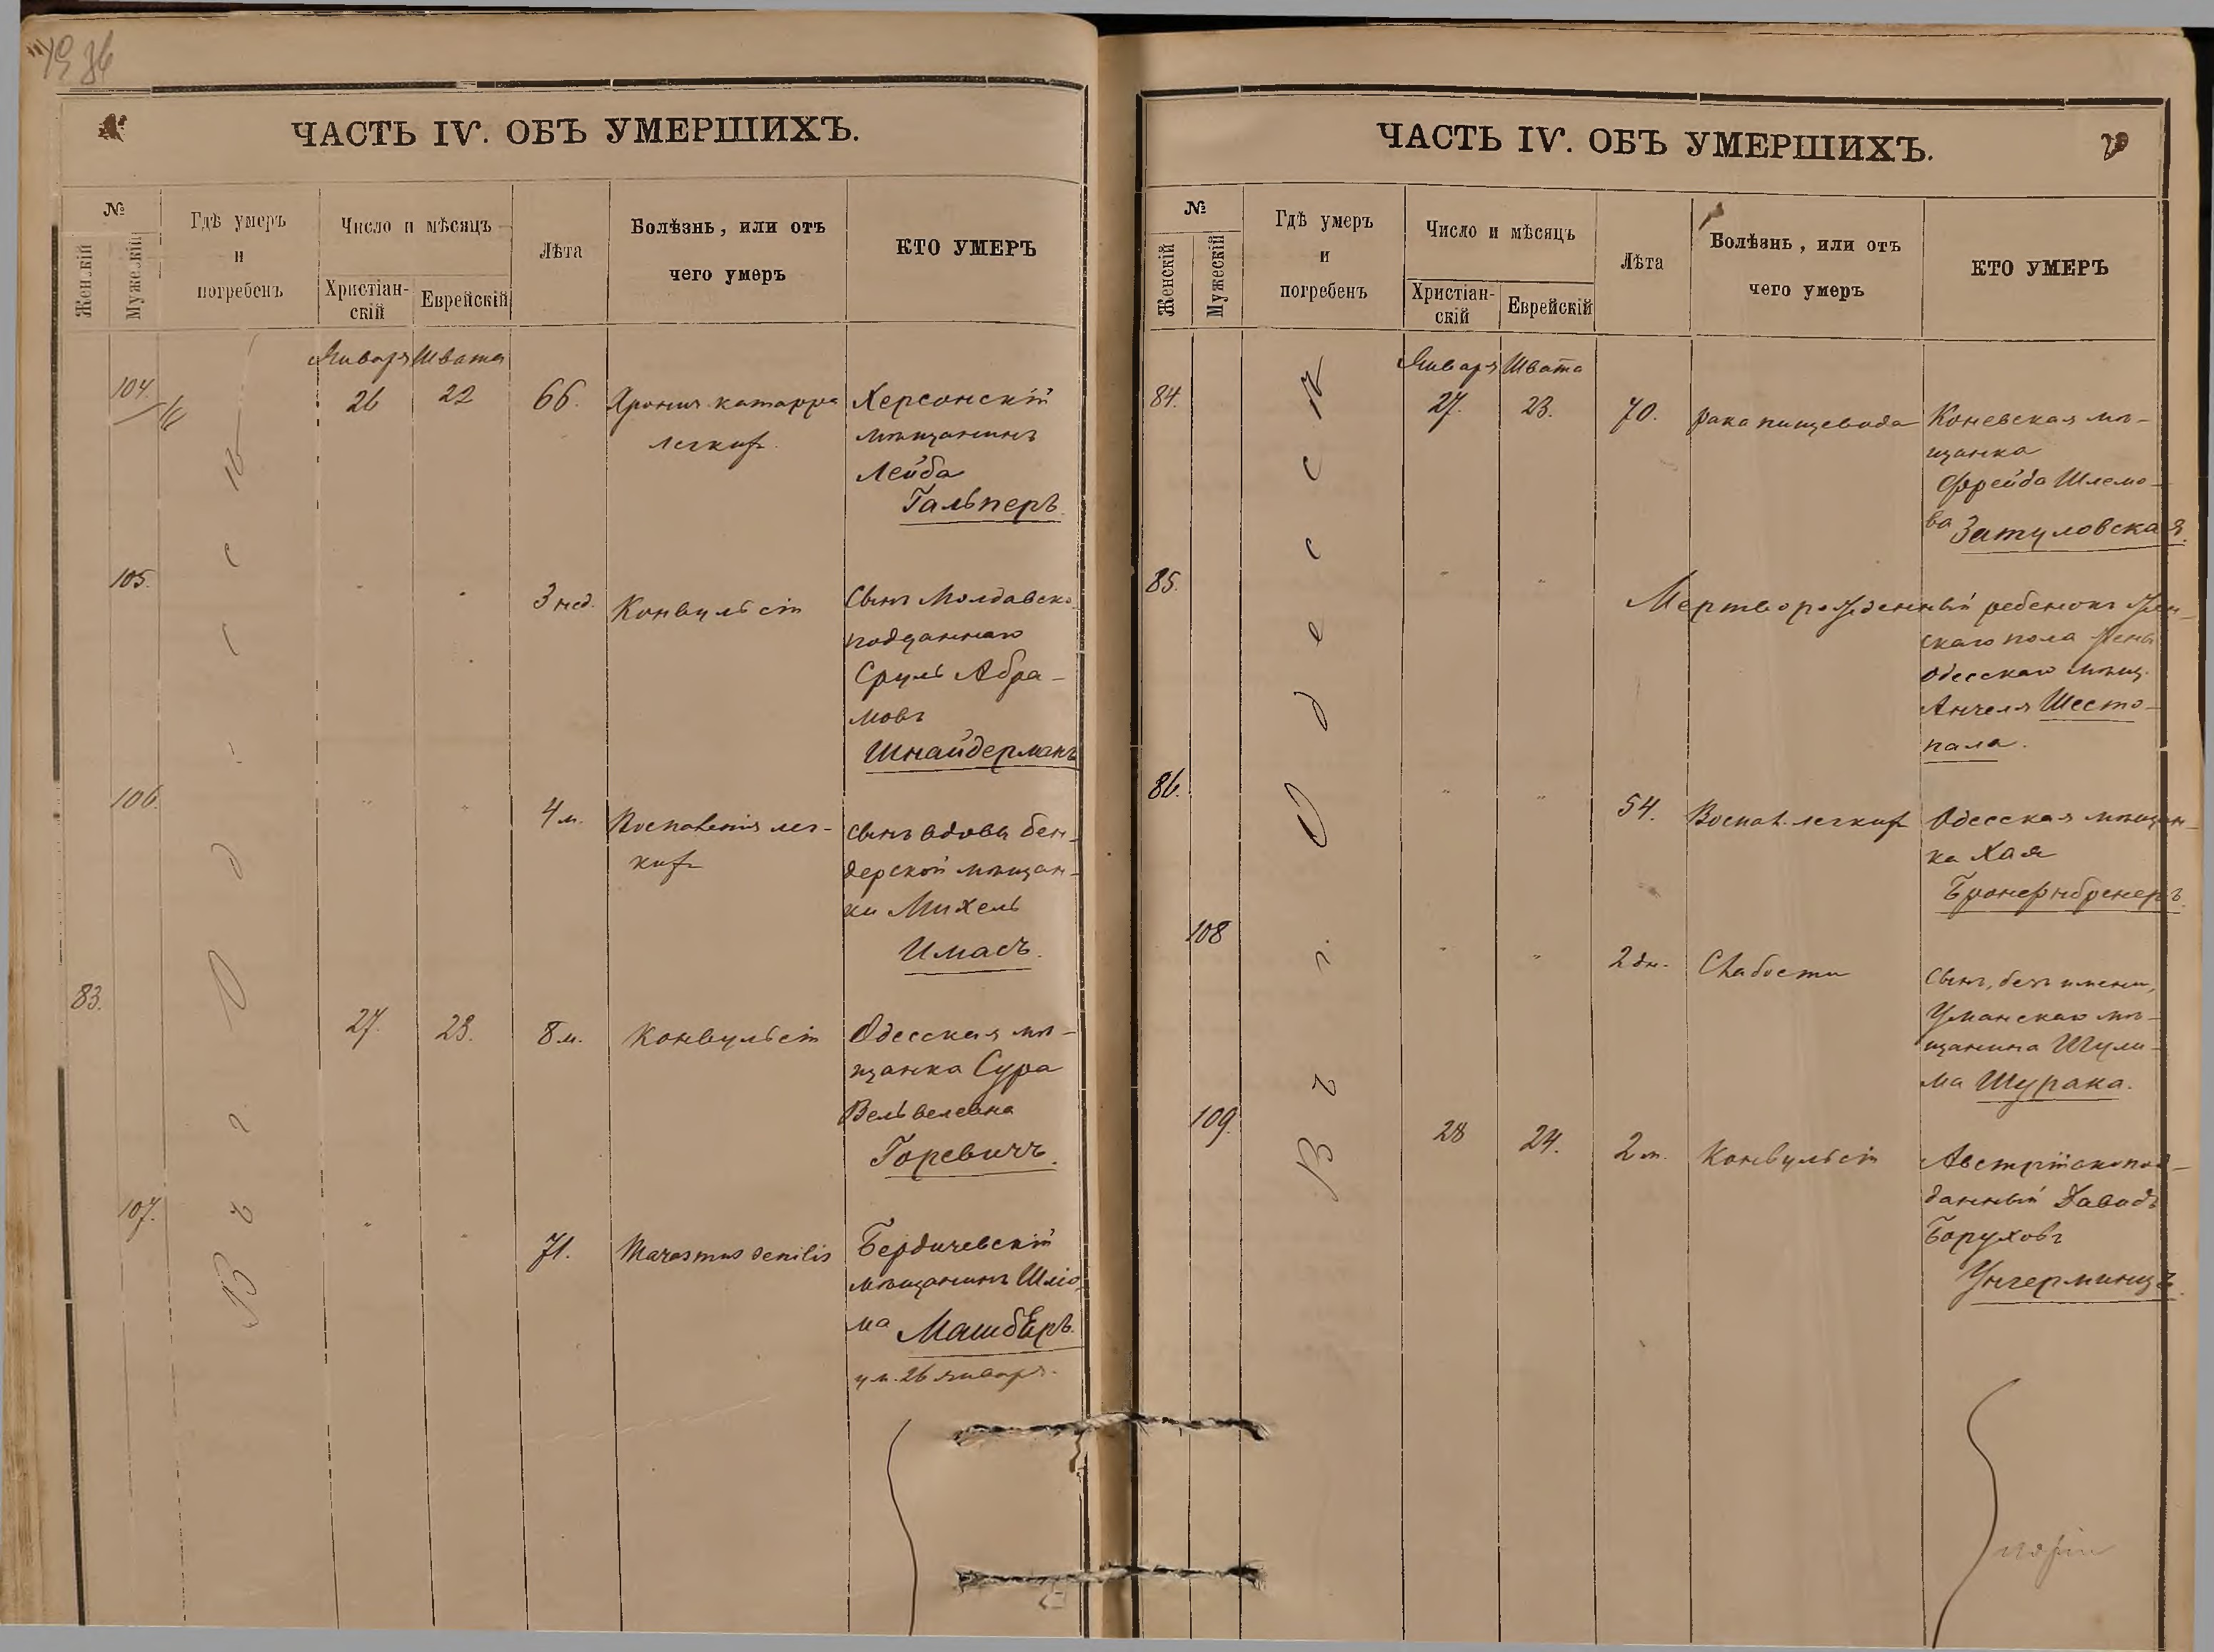 36
ЧАСТЬ IV. ОБЪ УМЕРШИХЪ.
№
Женскій
Мужескій
Гдѣ умеръ
и
погребенъ
Число и мѣсяцъ
Христіан-
скій
Еврейскій
Лѣта
Болѣзнь, или отъ
чего умеръ
КТО УМЕРЪ
Въ г. Одессѣ
Января Швата
104. 26 22 66. Хронич. катарра Херсонскій
легкихъ мѣщанинъ
Лейба
Гальперъ.
105. " " 3 нед. Конвульсіи Сынъ Молдавско
подданнаго
Сруль Абра-
мовъ
Шнайдерманъ
106. " " 4 м. Воспаленія лег- Сынъ вдовы бен-
кихъ дерской мѣщан-
ки Михель
Имасъ.
83. 27. 23. 8 м. Конвульсіи Одесская мѣ-
щанка Сура
Вельвелевна
Горевичъ.
107. " " 71. Marasmus senilis Бердичевскій
мѣщанинъ Шлio-
ма Машберъ.
ум. 26 января.
ЧАСТЬ IV. ОБЪ УМЕРШИХЪ.
№
Женскій
Мужескій
Гдѣ умеръ
и
погребенъ
Число и мѣсяцъ
Христіан-
скій
Еврейскій
Лѣта
Болѣзнь, или отъ
чего умеръ
КТО УМЕРЪ
Въ г. Одессѣ
Января Швата
84. 27. 23. 70. рака пищевода Коневская мѣ-
щанка
Фрейда Шлемо-
ва Затуловская.
85. " " Мертворожденный ребенокъ жен-
скаго пола жены
Одесскаго мѣщ.
Анчеля Шесто-
пала.
86. " " 54. Воспал. легкихъ Одесская мѣщан-
ка Хая
108 " " 2 дн. Слабости Сынъ, безъ имени,
Уманскаго мѣ-
щанина Шули-
ма Шурака.
109. 28 24. 2 м. Конвульсіи Австрійскопод-
данный Давидъ
Боруховъ
Унгерминцъ